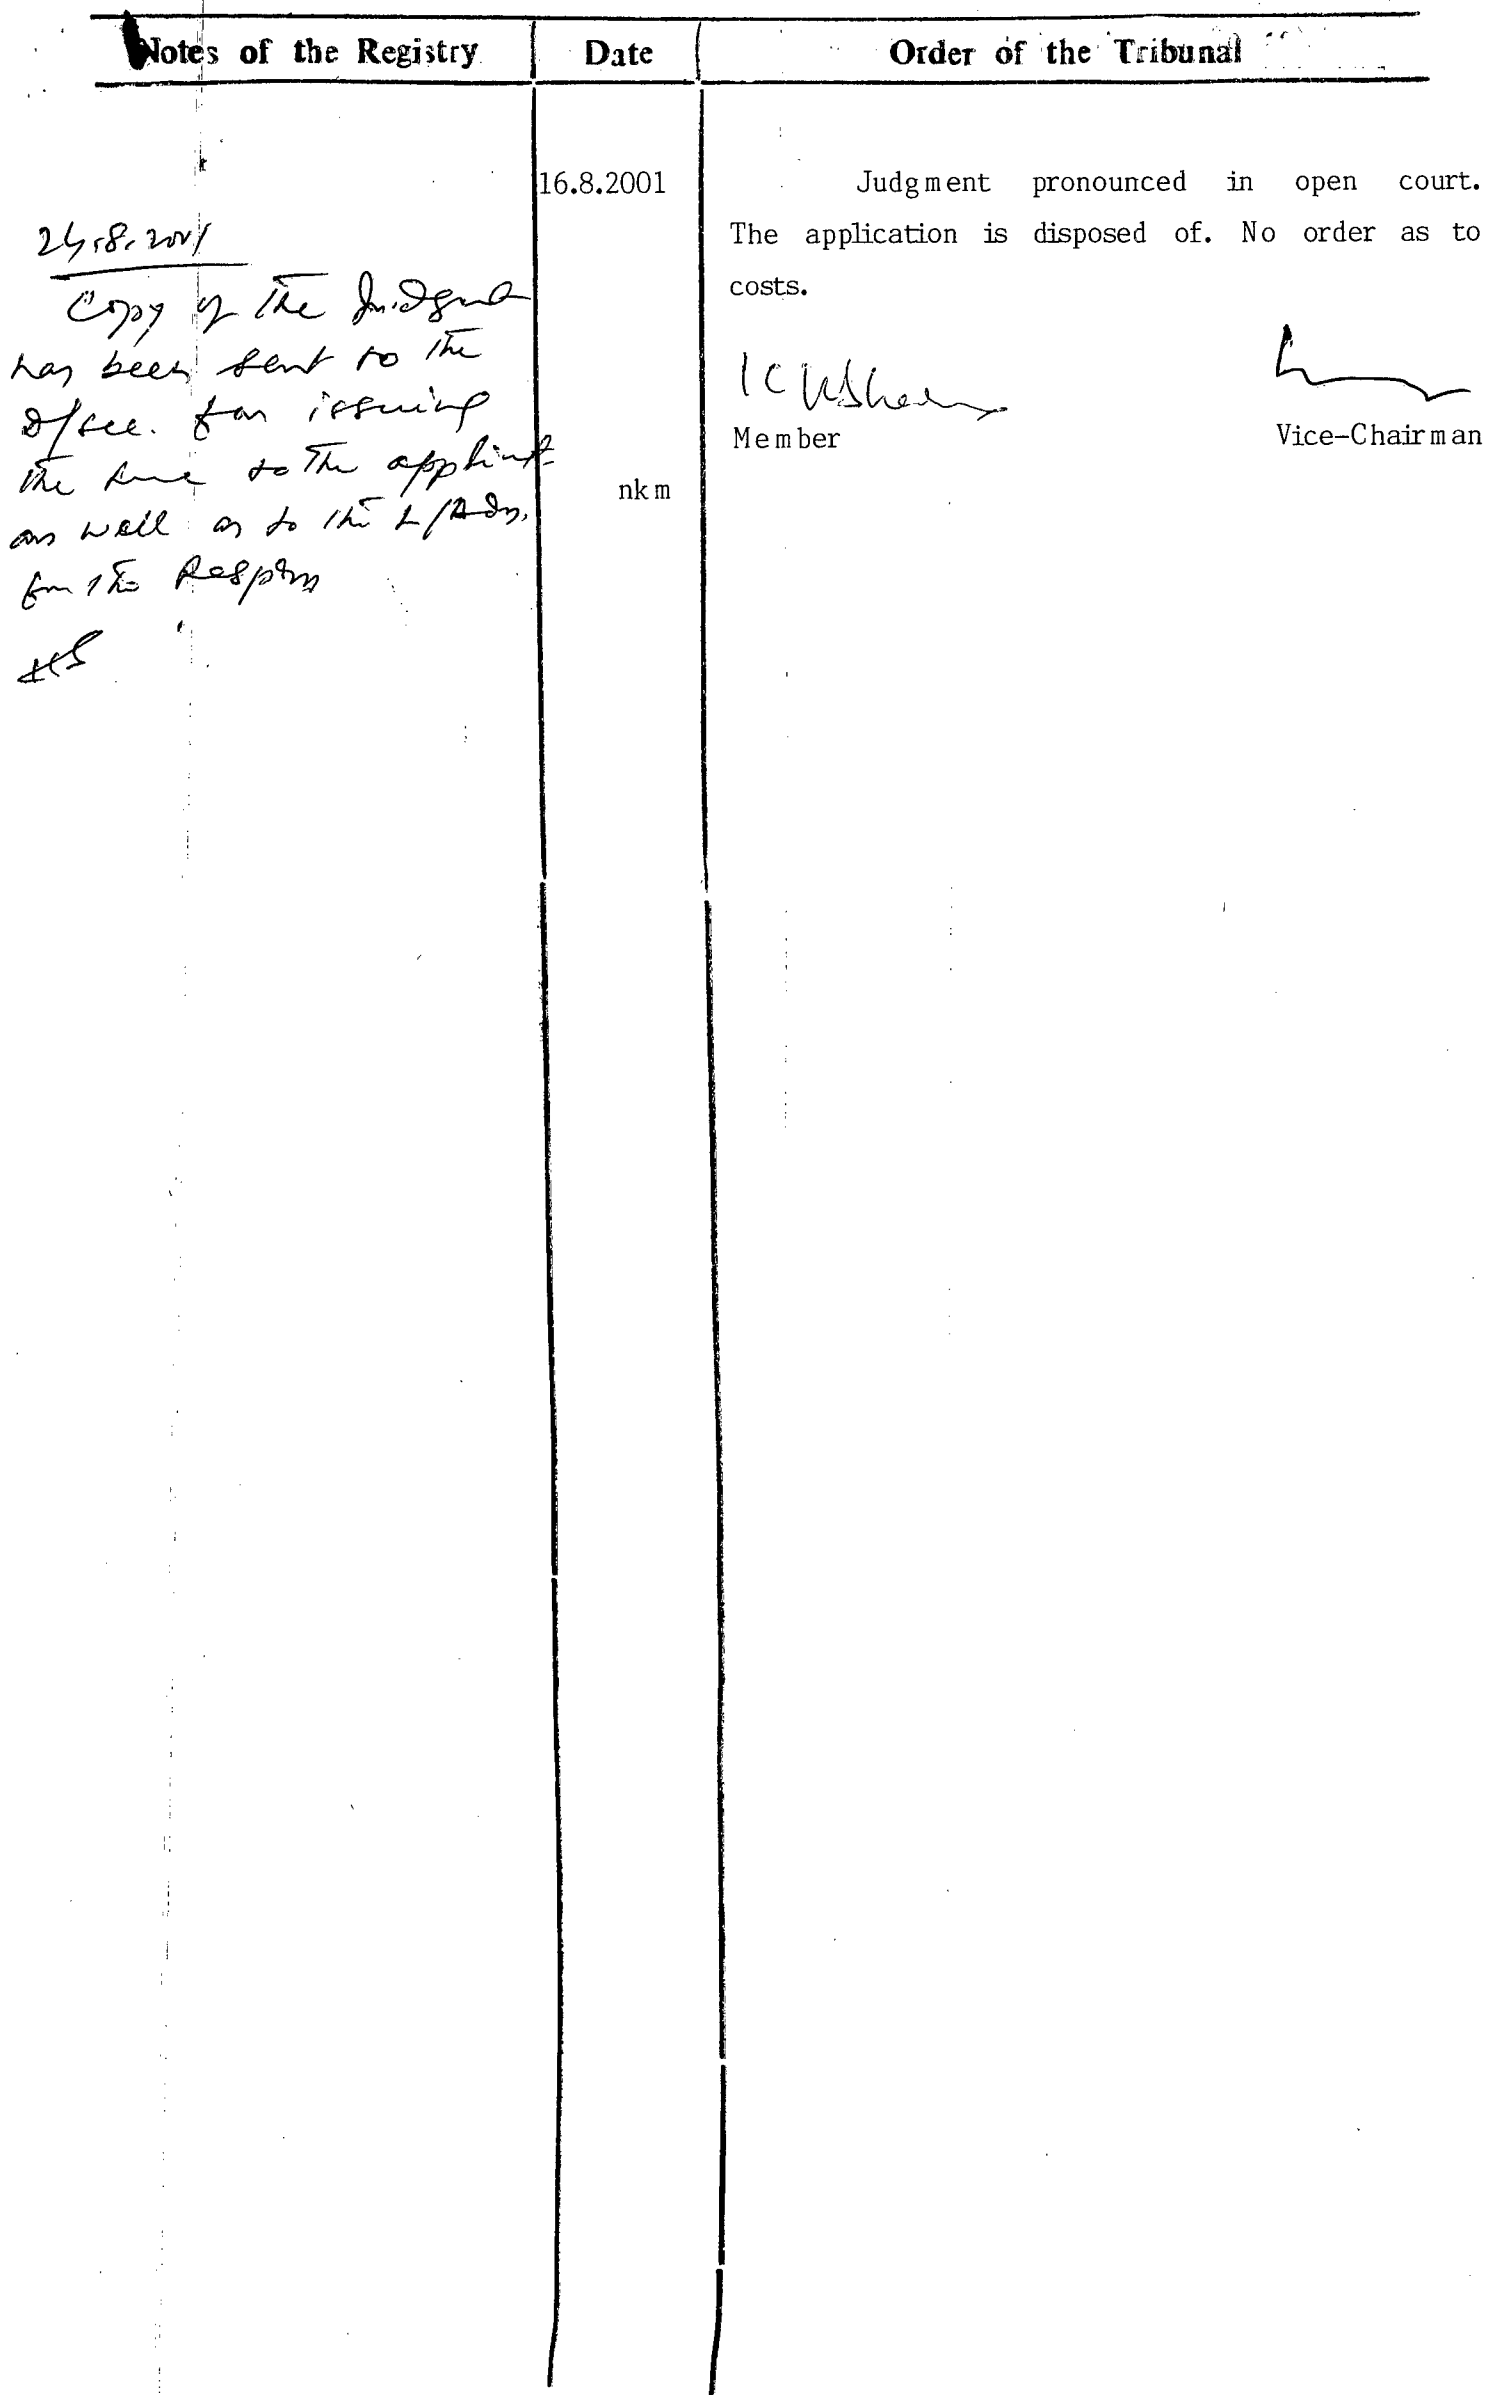 Notes of the Registry
Date
Order of the Tribunal
24.8.2001
Copy of the Judgmet
has been sent to the
D/sec. for issuing
the same to the applicant
as well as to the L/Adv.
for the Respdts
16.8.2001
nkm
Judgment pronounced in open court.
The application is disposed of. No order as to
costs.
Member
Vice-Chairman